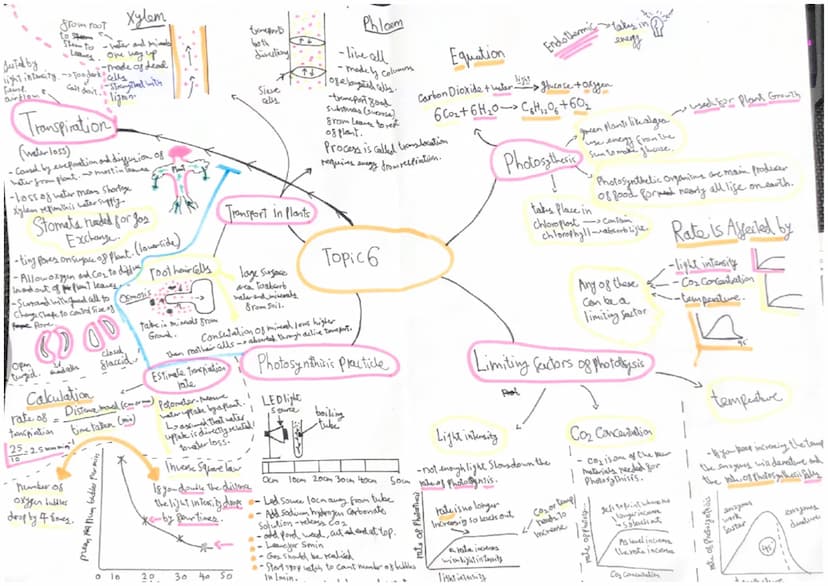 Xylem
from root
to stem
to
leaves.
- water and minerals
one way up
- made of dead
cells
- strengthened with
lignin.
Phloem
transport
both
directions
Sieve
cells
- live cell
- made by columns
of elongated cells.
- transport food
substances (sucrose)
from leaves to rest
of plant.
Process is called translocation
requires energy from respiration.
light intensity
Transpiration
(water loss)
- caused by evaporation and diffusion of
water from plant. → most in leaves
- loss of water mean shortage
xylem replenishes water supply.
Plant
Stomata needed for gas
Exchange.
- tiny pores on surface of plant. (lowerside)
- Allow oxygen and CO2 to diffuse
in and out of plant leaves.
- Surround with guard cell to
change shape to control size of
Pore.
open
turgid
closed
flaccid
Transport in plants
Topic 6
root hair cells
Osmosis
large surface
area to absorb
water and minerals
from soil.
take in minerals from
Ground.
Concentration of mineral ions higher
than root hair cells → absorbed through active transport.
Photosynthisis Practicle
Estimate transpiration
rate
Potometer measure
water uptake by a plant.
↳ assumed that water
uptake is directly related
to water loss.
Calculation
rate of
transpiration
= Distance moved (cm or mm)
time taken (min)
25
10
= 2.5 mm min⁻¹
Number of
oxygen bubbles
drop by 4 times.
Inverse Square law
If you double the distance
the light intensity drops
by four times.
0 10 20 30 40 50
LED light
source
boiling
tube
0cm 10cm 20cm 30cm 40cm 50cm
- Led source 10cm away from tube
- Add sodium hydrogen carbonate
solution - release CO2
- Leave for 5min
- Gas should be realised
- Start stop watch to count number of bubbles
in 1 min.
Equation
Endothermic → takes in
energy
Carbon Dioxide + water → glucose + oxygen
light
6CO2 + 6H2O → C6H12O6 + 6O2
Photosythesis
green plants like algae
use energy from the
sun to make glucose.
used for plant Growth
Photosynthetic organisms are main producer
of food for nearly all life on earth.
takes place in
chloroplast → contain
chlorophyll → absorb light.
Rate Is Affected by
- light intensity
- CO2 Concentration
- temperature.
Any of these
can be a
limiting factor
45
Limiting factors of Photolysis
Light intensity
- not enough light slows down the
rate of photolysis.
rate is no longer
increasing so levels out
CO2 or temp
needs to
increase
rate of Photolysis
As rate increase
light intensity
CO2 Concentration
- CO2 is one of the raw
materials needed for
Photosynthisis.
rate of photosy.
increase
so levels out
As level increase
the rate increase
CO2 concentration
temperature
- If you keep increasing the temp
the enzymes will denature and
the rate of Photosynthesis falls
rate of photosynthesis
enzymes
work
faster
45
enzymes
denature